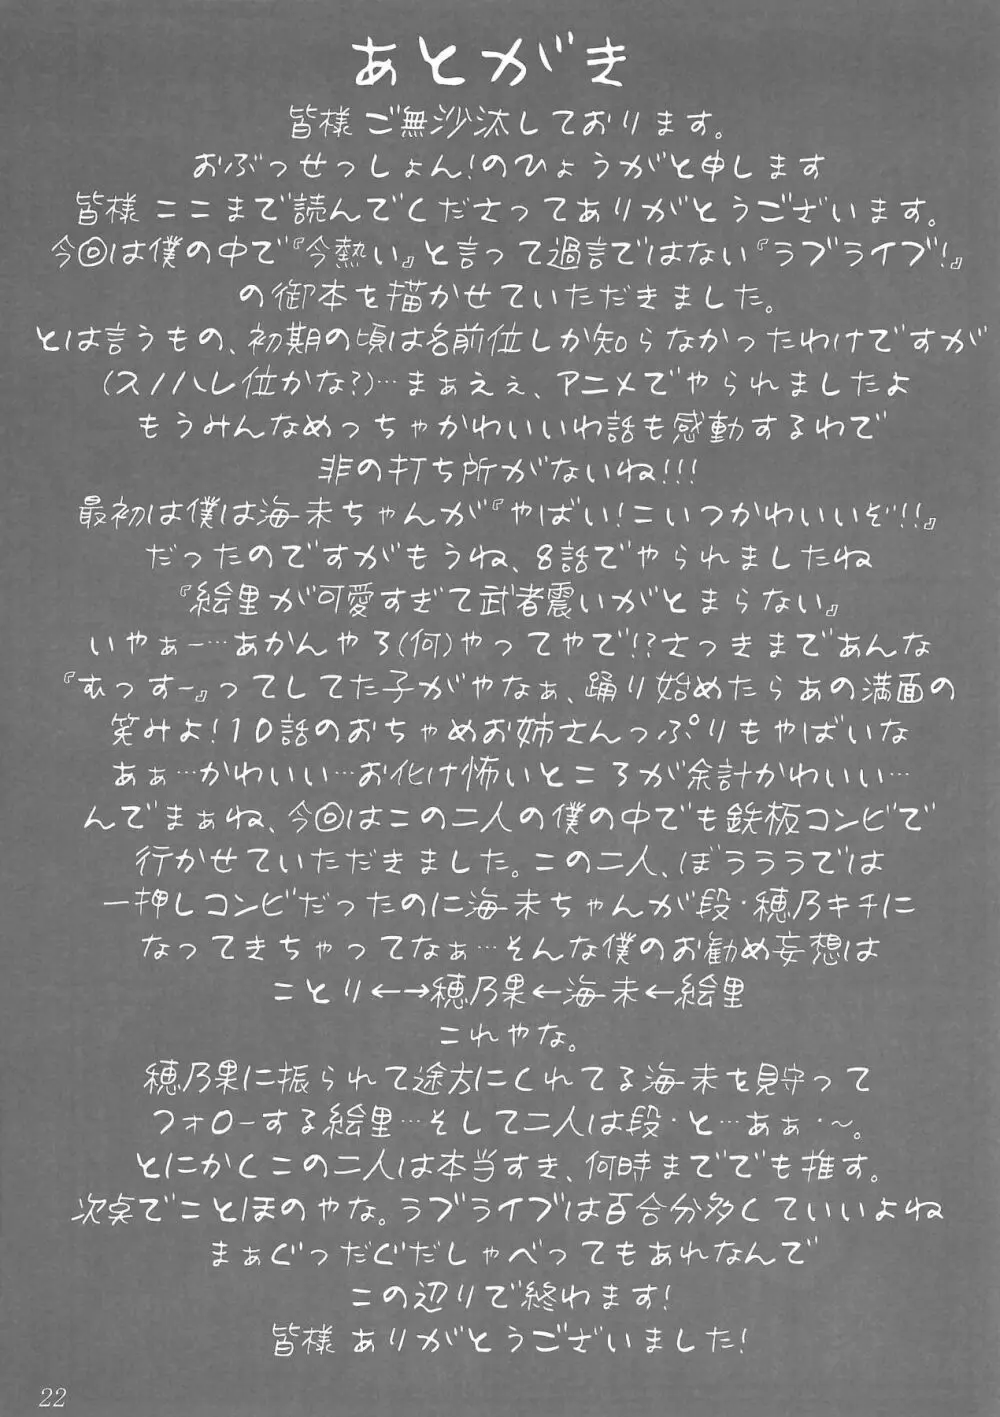 あとがき
皆様 ご無沙汰しております。
おぶっせっしょん!のひょうがと申します
皆様 ここまで読んでくださってありがとうございます。
今回は僕の中で『今熱い』と言って過言ではない『ラブライブ!』
の御本を描かせていただきました。
とは言うもの、初期の頃は名前位しか知らなかったわけですが
(スノハレ位かな?)…まぁえぇ、アニメでやられましたよ
もうみんなめっちゃかわいいわ話も感動するわで
非の打ち所がないね!!!
最初は僕は海未ちゃんが『やばい!こいつかわいいぞ!!』
だったのですがもうね、8話でやられましたね
『絵里が可愛すぎて武者震いがとまらない』
いやぁー…あかんやろ(何)やってやで!?さっきまであんな
『むっすー』ってしてた子がやなぁ、踊り始めたらあの満面の
笑みよ!10話のおちゃめお姉さんっぷりもやばいな
あぁ…かわいい…お化け怖いところが余計かわいい…
んでまぁね、今回はこの二人の僕の中でも鉄板コンビで
行かせていただきました。この二人、ぼらららでは
一押しコンビだったのに海未ちゃんが段・穂乃キチに
なってきちゃってなぁ…そんな僕のお勧め妄想は
ことり←→穂乃果←海未←絵里
これやな。
穂乃果に振られて途方にくれてる海未を見守って
フォローする絵里…そして二人は段・と…あぁ・〜。
とにかくこの二人は本当すき、何時まででも推す。
次点でことほのやな。ラブライブは百合分多くていいよね
まぁぐっだぐだしゃべってもあれなんで
この辺りで終わます!
皆様 ありがとうございました!
22